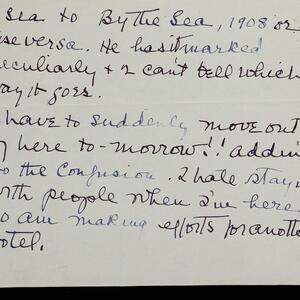 Sea to By the Sea, 1908 or
verso. He has it marked
peculiarly & I can't tell which
way it goes.
have to suddenly move out
here to-morrow!! adding
to the confusion. I hate stay
with people when I'm here
so am making efforts for anothe
hotel.